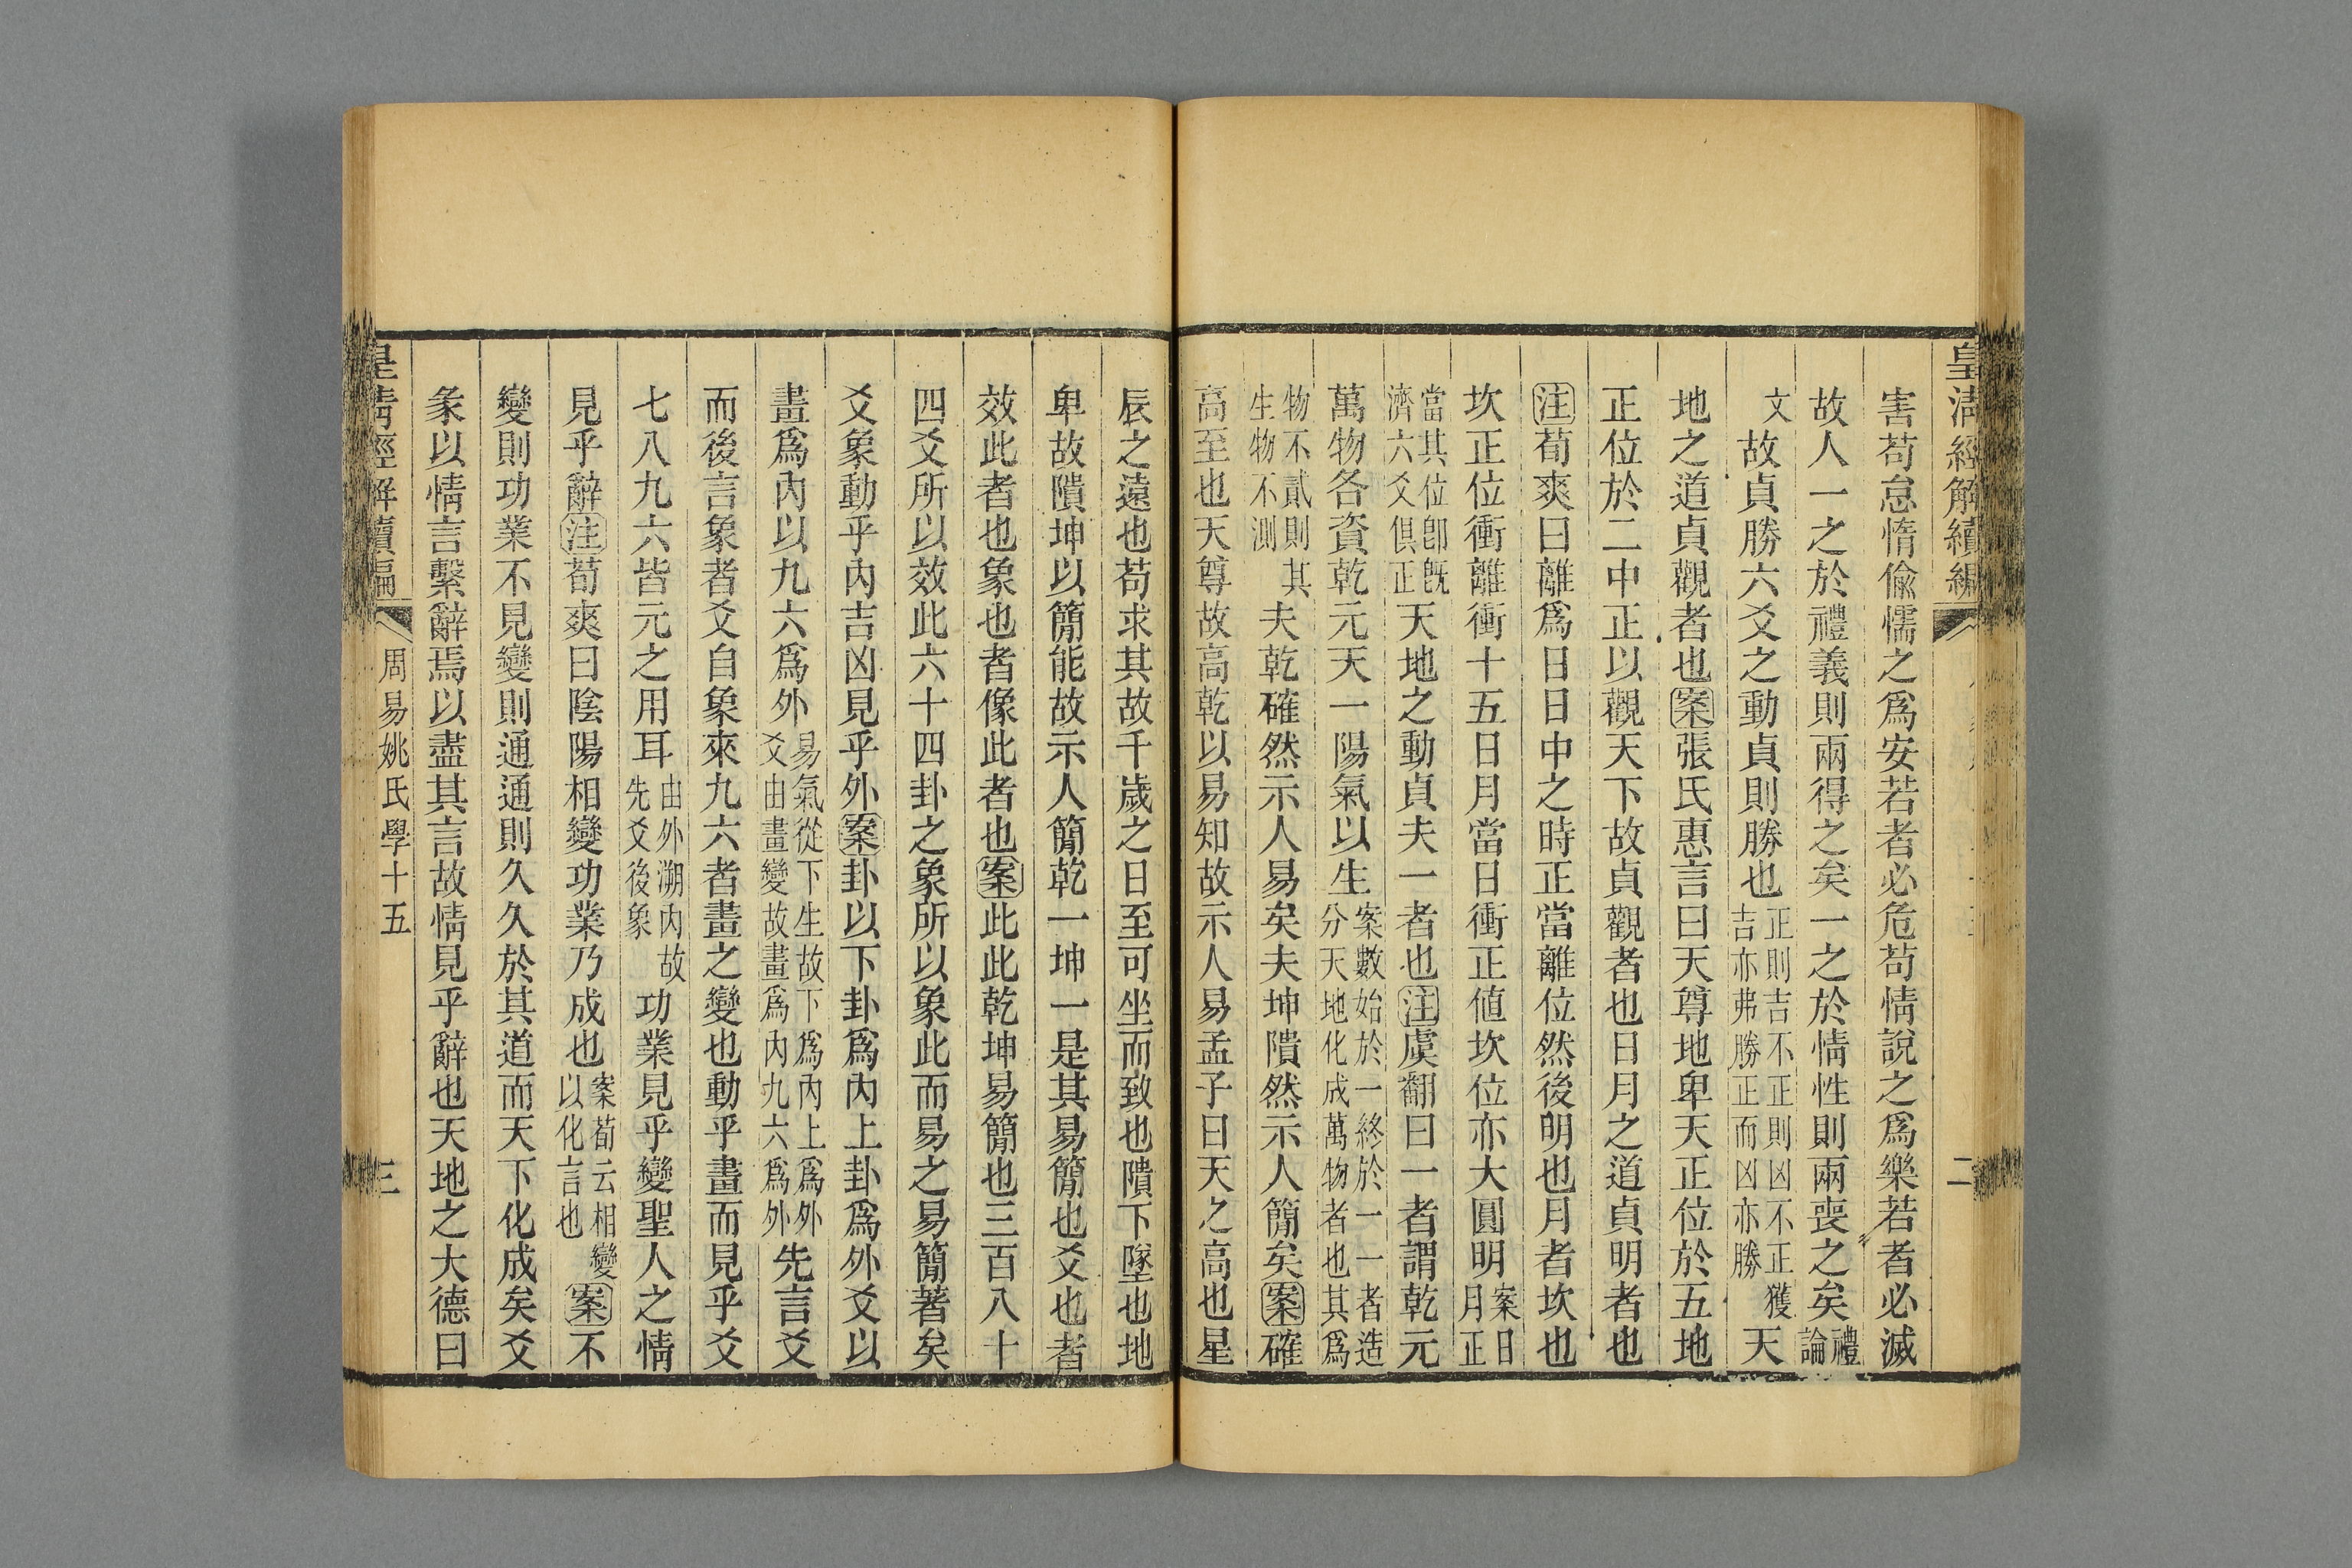 皇清經解續編
二
害苟怠惰偸懦之爲安若者必危苟情說之爲樂若者必滅
故人一之於禮義則兩得之矣一之於情性則兩喪之矣禮論
文故貞勝六爻之動貞則勝也正則吉不正則凶不正獲吉亦弗勝正而凶亦勝天
地之道貞觀者也案張氏惠言曰天尊地卑天正位於五地
正位於二中正以觀天下故貞觀者也日月之道貞明者也
注荀爽曰離爲日日中之時正當離位然後明也月者坎也
坎正位衝離衝十五日月當日衝正値坎位亦大圓明案日月正
當其位卽旣濟六爻俱正天地之動貞夫一者也注虞翻曰一者謂乾元
萬物各資乾元天一陽氣以生案數始於一終於一一者造分天地化成萬物者也其爲
物不貳則其生物不測夫乾確然示人易矣夫坤隤然示人簡矣案確
高至也天尊故高乾以易知故示人易孟子曰天之高也星
辰之遠也苟求其故千歲之日至可坐而致也隤下墜也地
卑故隤坤以簡能故示人簡乾一坤一是其易簡也爻也者
效此者也象也者像此者也案此此乾坤易簡也三百八十
四爻所以效此六十四卦之象所以象此而易之易簡著矣
爻象動乎內吉凶見乎外案卦以下卦爲內上卦爲外爻以
畫爲內以九六爲外易氣從下生故下爲內上爲外爻由畫變故畫爲內九六爲外先言爻
而後言象者爻自象來九六者畫之變也動乎畫而見乎爻
七八九六皆元之用耳由外溯內故先爻後象功業見乎變聖人之情
見乎辭注荀爽曰陰陽相變功業乃成也案荀云相變以化言也案不
變則功業不見變則通通則久久於其道而天下化成矣爻
彖以情言繫辭焉以盡其言故情見乎辭也天地之大德曰
皇清經解續編
周易姚氏學十五
三